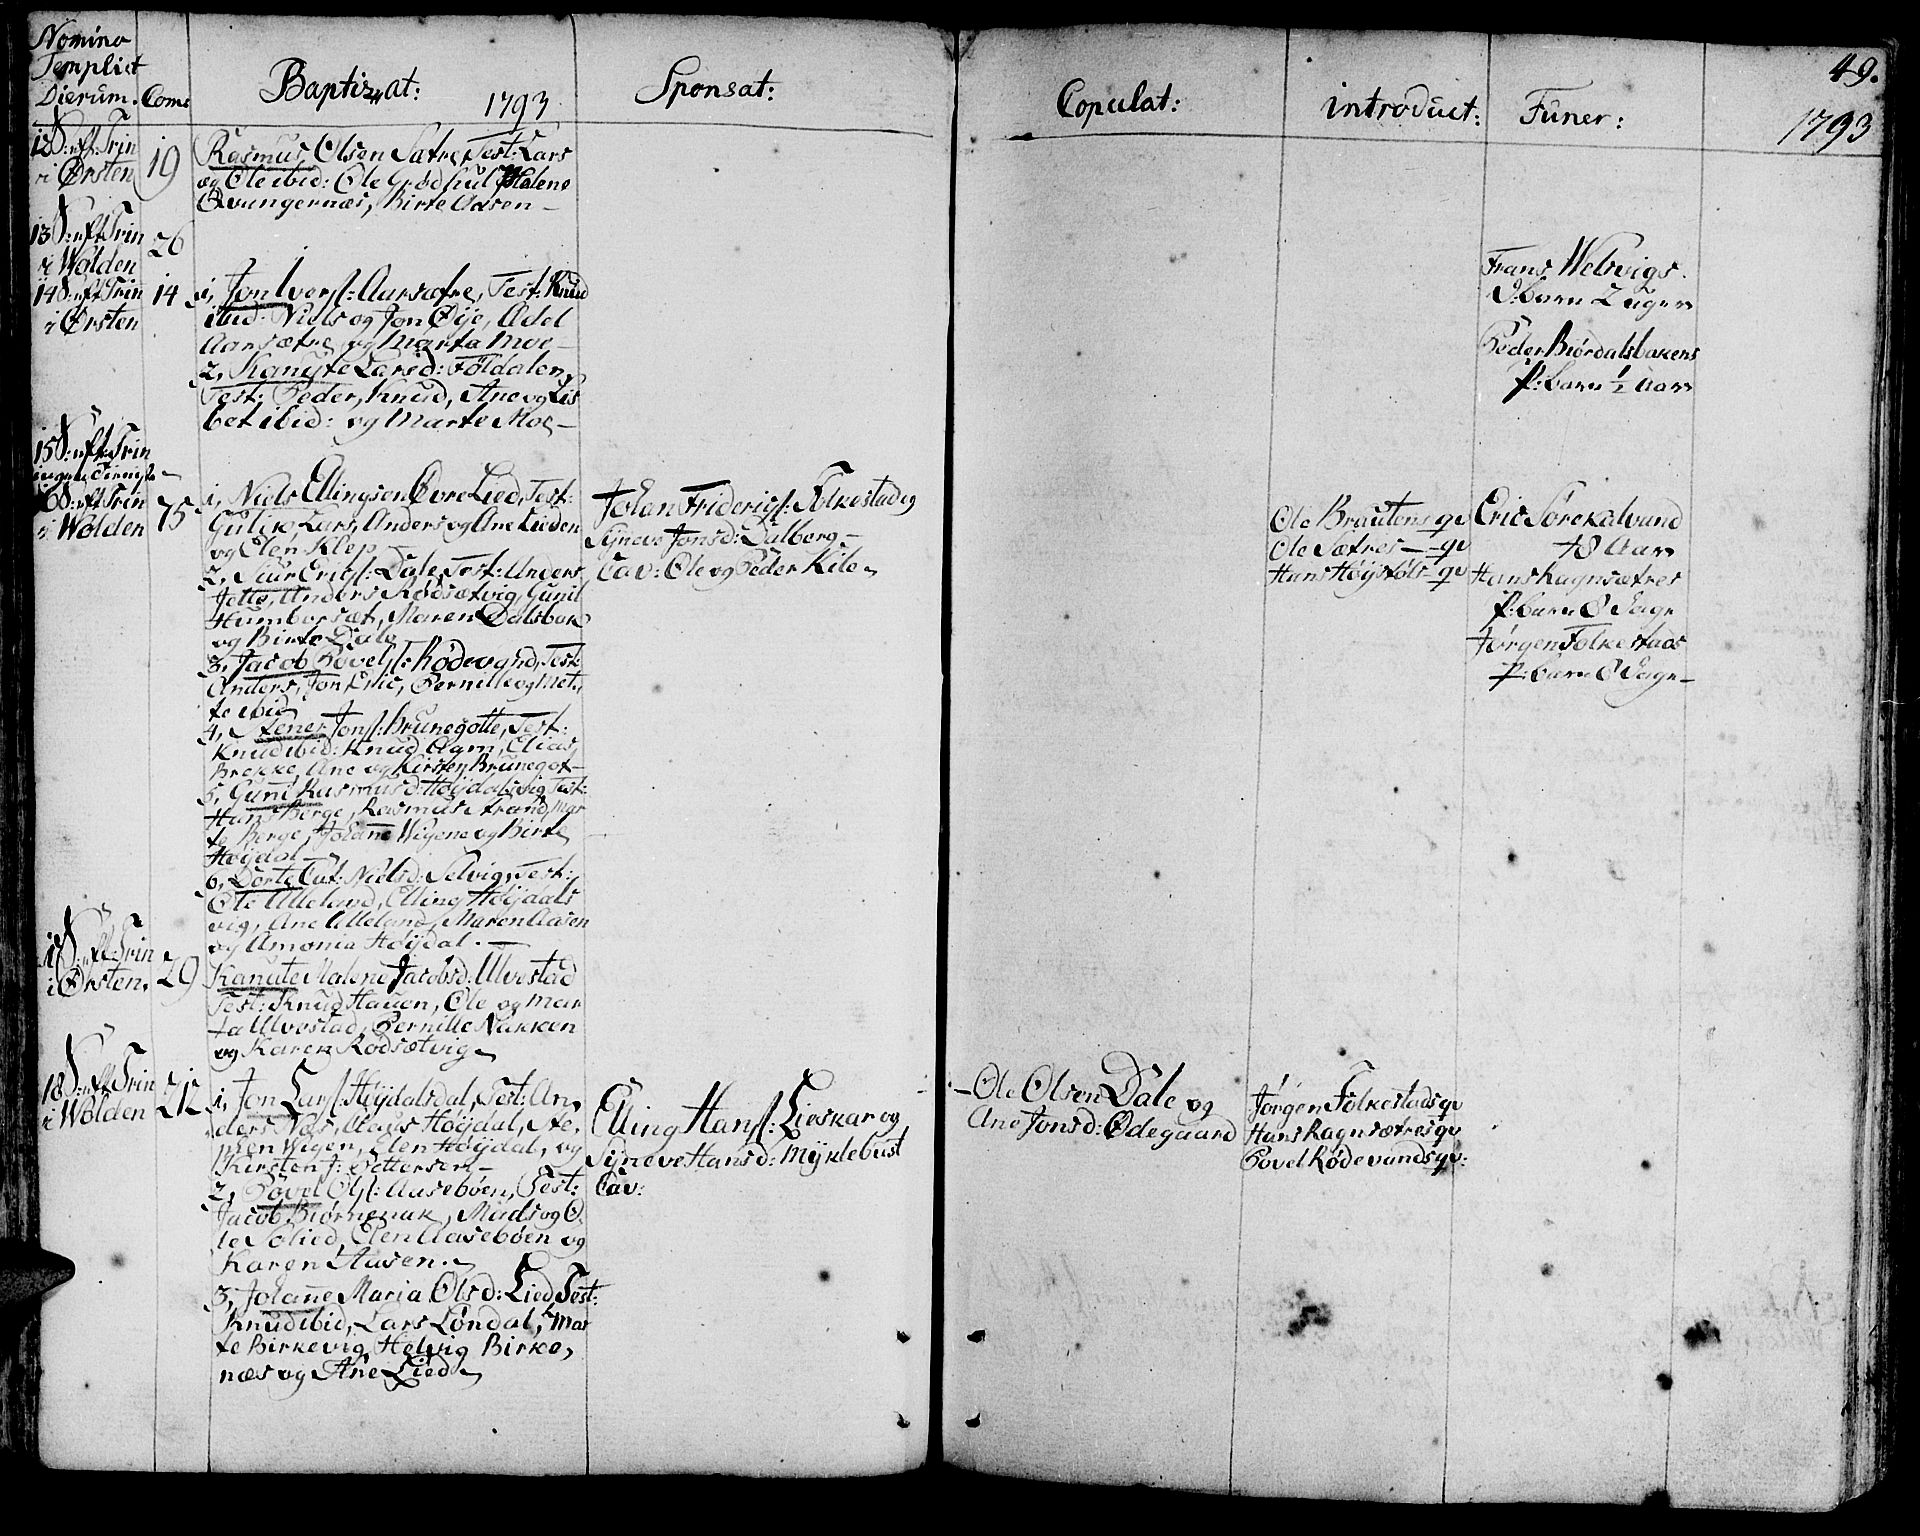 Nomina
Templi et
Dierum.
Com:
Baptizat:
1793
Sponsat:
Copulat:
introduct:
Funer:
49.
1793
12 S: eft: Trin
i Ørsten
19
Rasmus Olsen Sætre, Test: Lars
og Ole ibid: Ole Grødhul Malene
Qvangernæs, Birte Aasen –
13 S: eft Trin
i Wolden
26
Frans Welsvigs
D: barn 2 uger
14 S: eft Trin
i Ørsten
14
1, Jon Ivers: Aarsætre, Test: Knud
ibid: Niels og Jon Øye, Adel
Aarsætre og Marta Moe –
2, Kanute Larsd: Foldalen,
Test: Peder, Knud, Ane og Lis
bet ibid: og Marte Moe –
Peder Biørdalsbakens
p: barn 1/2 Aar
15 S: eft: Trin
ingen
–
16 S: eft Trin
i Wolden
75
1, Niels Ellingsen Øvre Lied, Test:
Gulik, Lars, Anders og Ane Lieden
og Elen Klep –
2, Siur Erics: Dale, Test: Anders
Jetto, Anders Rødsætvig, Gunil
Humborsæt, Maren Dalsbøe
og Birte Dale
3, Jacob Povels: Rødevand, Test:
Anders, Jon Eric, Pernille og Met
te ibid
4, Stener Jons: Brunegotte, Test:
Knud ibid: Knud Aam, Elias
Brekke, Ane og Kirsten Brunegot –
5, Guni Rasmusd: Høydalsvig Test:
Hans Berge, Rasmus Strand, Mar
te Berge, Johane Wigene og Birte
Høydal –
6, Dorte Cat: Nielsd: Selvig, Test:
Ole Ulleland, Elling Høydals
vig, Ane Ulleland, Maren Aasen
og Amonia Høydal. –
Johan Friderics: Folkestad og
Syneve Jonsd: Dalberg –
Cav: Ole og Peder Kile
Ole Brautens qv
Ole Sætres – qv
Hans Høystøls – qv
Eric Sørekalvund
78 Aar
Hans Ragnsætres
p: barn 8 Dage
Jørgen Folkestads
p: barn 8 Dage –
17 S: eft: Trin
i Ørsten.
29
Kanute Malene Jacobsd: Ulvestad
Test: Knud Hauen, Ole og Mar
ta Ulvestad, Pernille Nakken
og Karen Rødsætvig
18 S: eft Trin
i Wolden
212
1, Jon Lars: Høydalsdal, Test: An
ders Næs, Claus Høydal, Ste
phen Wigen, Elen Høydal, og
Kirsten J: Pettersen –
2, Povel Ols: Aasebøen, Test:
Jacob Biørnenak, Mads og O
le Solied, Elen Aasebøen og
Karen Aasen.
3, Johane Maria Olsd: Lied Test:
Knud ibid, Lars Løndal, Mar
te Birkevig, Helvig Birke,
næs og Ane Lied
Elling Hans: Lieskar og
Syneve Hansd: Myklebust
Cav:
– Ole Olsen Dale og
Ane Jonsd: Ødegaard
Jørgen Folkestads qv
Hans Ragnsætres qv
Povel Rødevands qv: